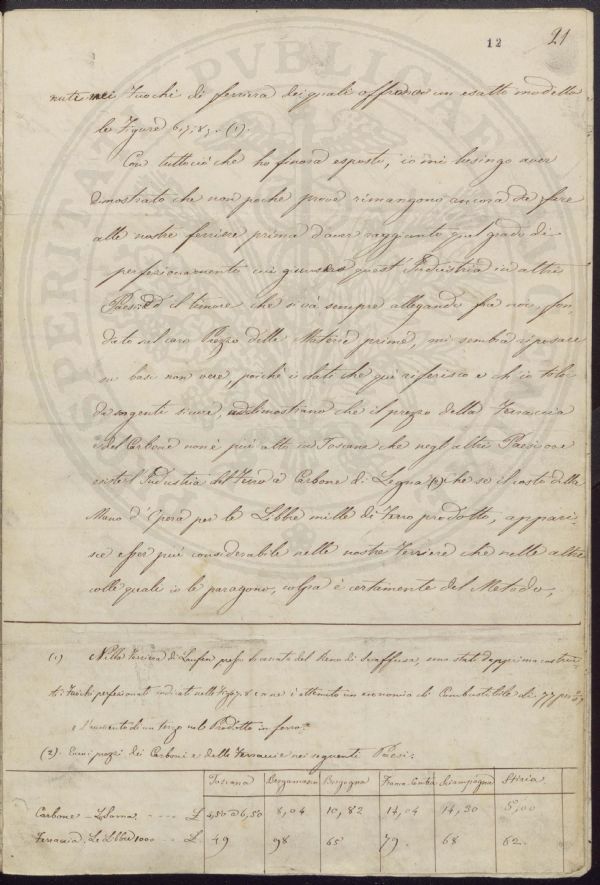 12 21
nute nei Fuochi di ferriera dei quali offrono un esatto modello
le Figure 6. 7. 8. (1).
Con tuttociò che ho finora esposto, io mi lusingo aver
dimostrato che non poche prove rimangono ancora da fare
alle nostre ferriere prima d'aver raggiunto quel grado di
perfezionamento cui giunse quest'Industria in altri
Paesi. Ed il timore che si và sempre allegando fra noi, fon-
dato sul caro Prezzo delle Materie prime, mi sembra riposare
su basi non vere, poichè i dati che quì riferisco e ch'io tolsi
da sorgenti sicure, dimostrano che il prezzo della Ferraccia
e del Carbone non è più alto in Toscana che negl'altri Paesi ove
esiste l'Industria del Ferro a Carbone di Legna (2) che se il costo della
Mano d'Opera per le Libbre mille di Ferro prodotto, appari-
sce esser più considerabile nelle nostre Ferriere che nelle altre
colle quali io le paragono, colpa è certamente del Metodo,
(1) Nella Ferriera di Laufen presso la cascata del Reno di Sciaffusa, sono stati dapprima costrui-
ti i Fuochi perfezionati indicati nelle Fig. 6. 7. 8 e ne è ottenuto un economia di Combustibile di 77 per %
e l'aumento di un terzo nel Prodotto in ferro.
(2) Ecco i prezzi dei Carboni e delle Ferraccie nei seguenti Paesi:
Toscana Bergamasco Borgogna Franca-Contea Sciampagna Stiria
Carbone - L. Soma - - - - £ 4,50 a 6,50 8,04 10,82 14,04 14,30 5,00
Ferraccia. Le Libbre 1000 - - £ 49 98 65 79 68 62